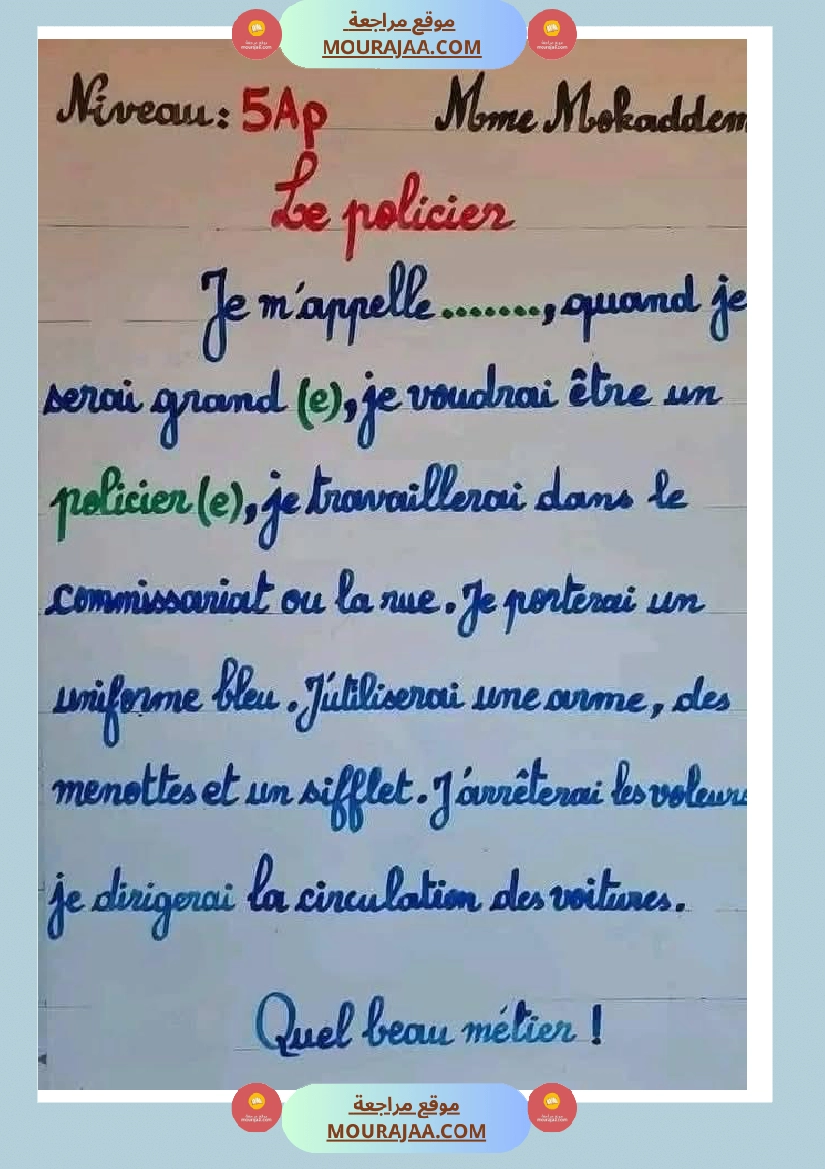 موقع مراجعة
MOURAJAA.COM
Niveau: 5Ap Mme Mokaddem
Le policier
Je m'appelle ......., quand je
serai grand (e), je voudrai être un
policier (e), je travaillerai dans le
commissariat ou la rue. Je porterai un
uniforme bleu. J'utiliserai une arme, des
menottes et un sifflet. J'arrêterai les voleurs
je dirigerai la circulation des voitures.
Quel beau métier !
موقع مراجعة
MOURAJAA.COM